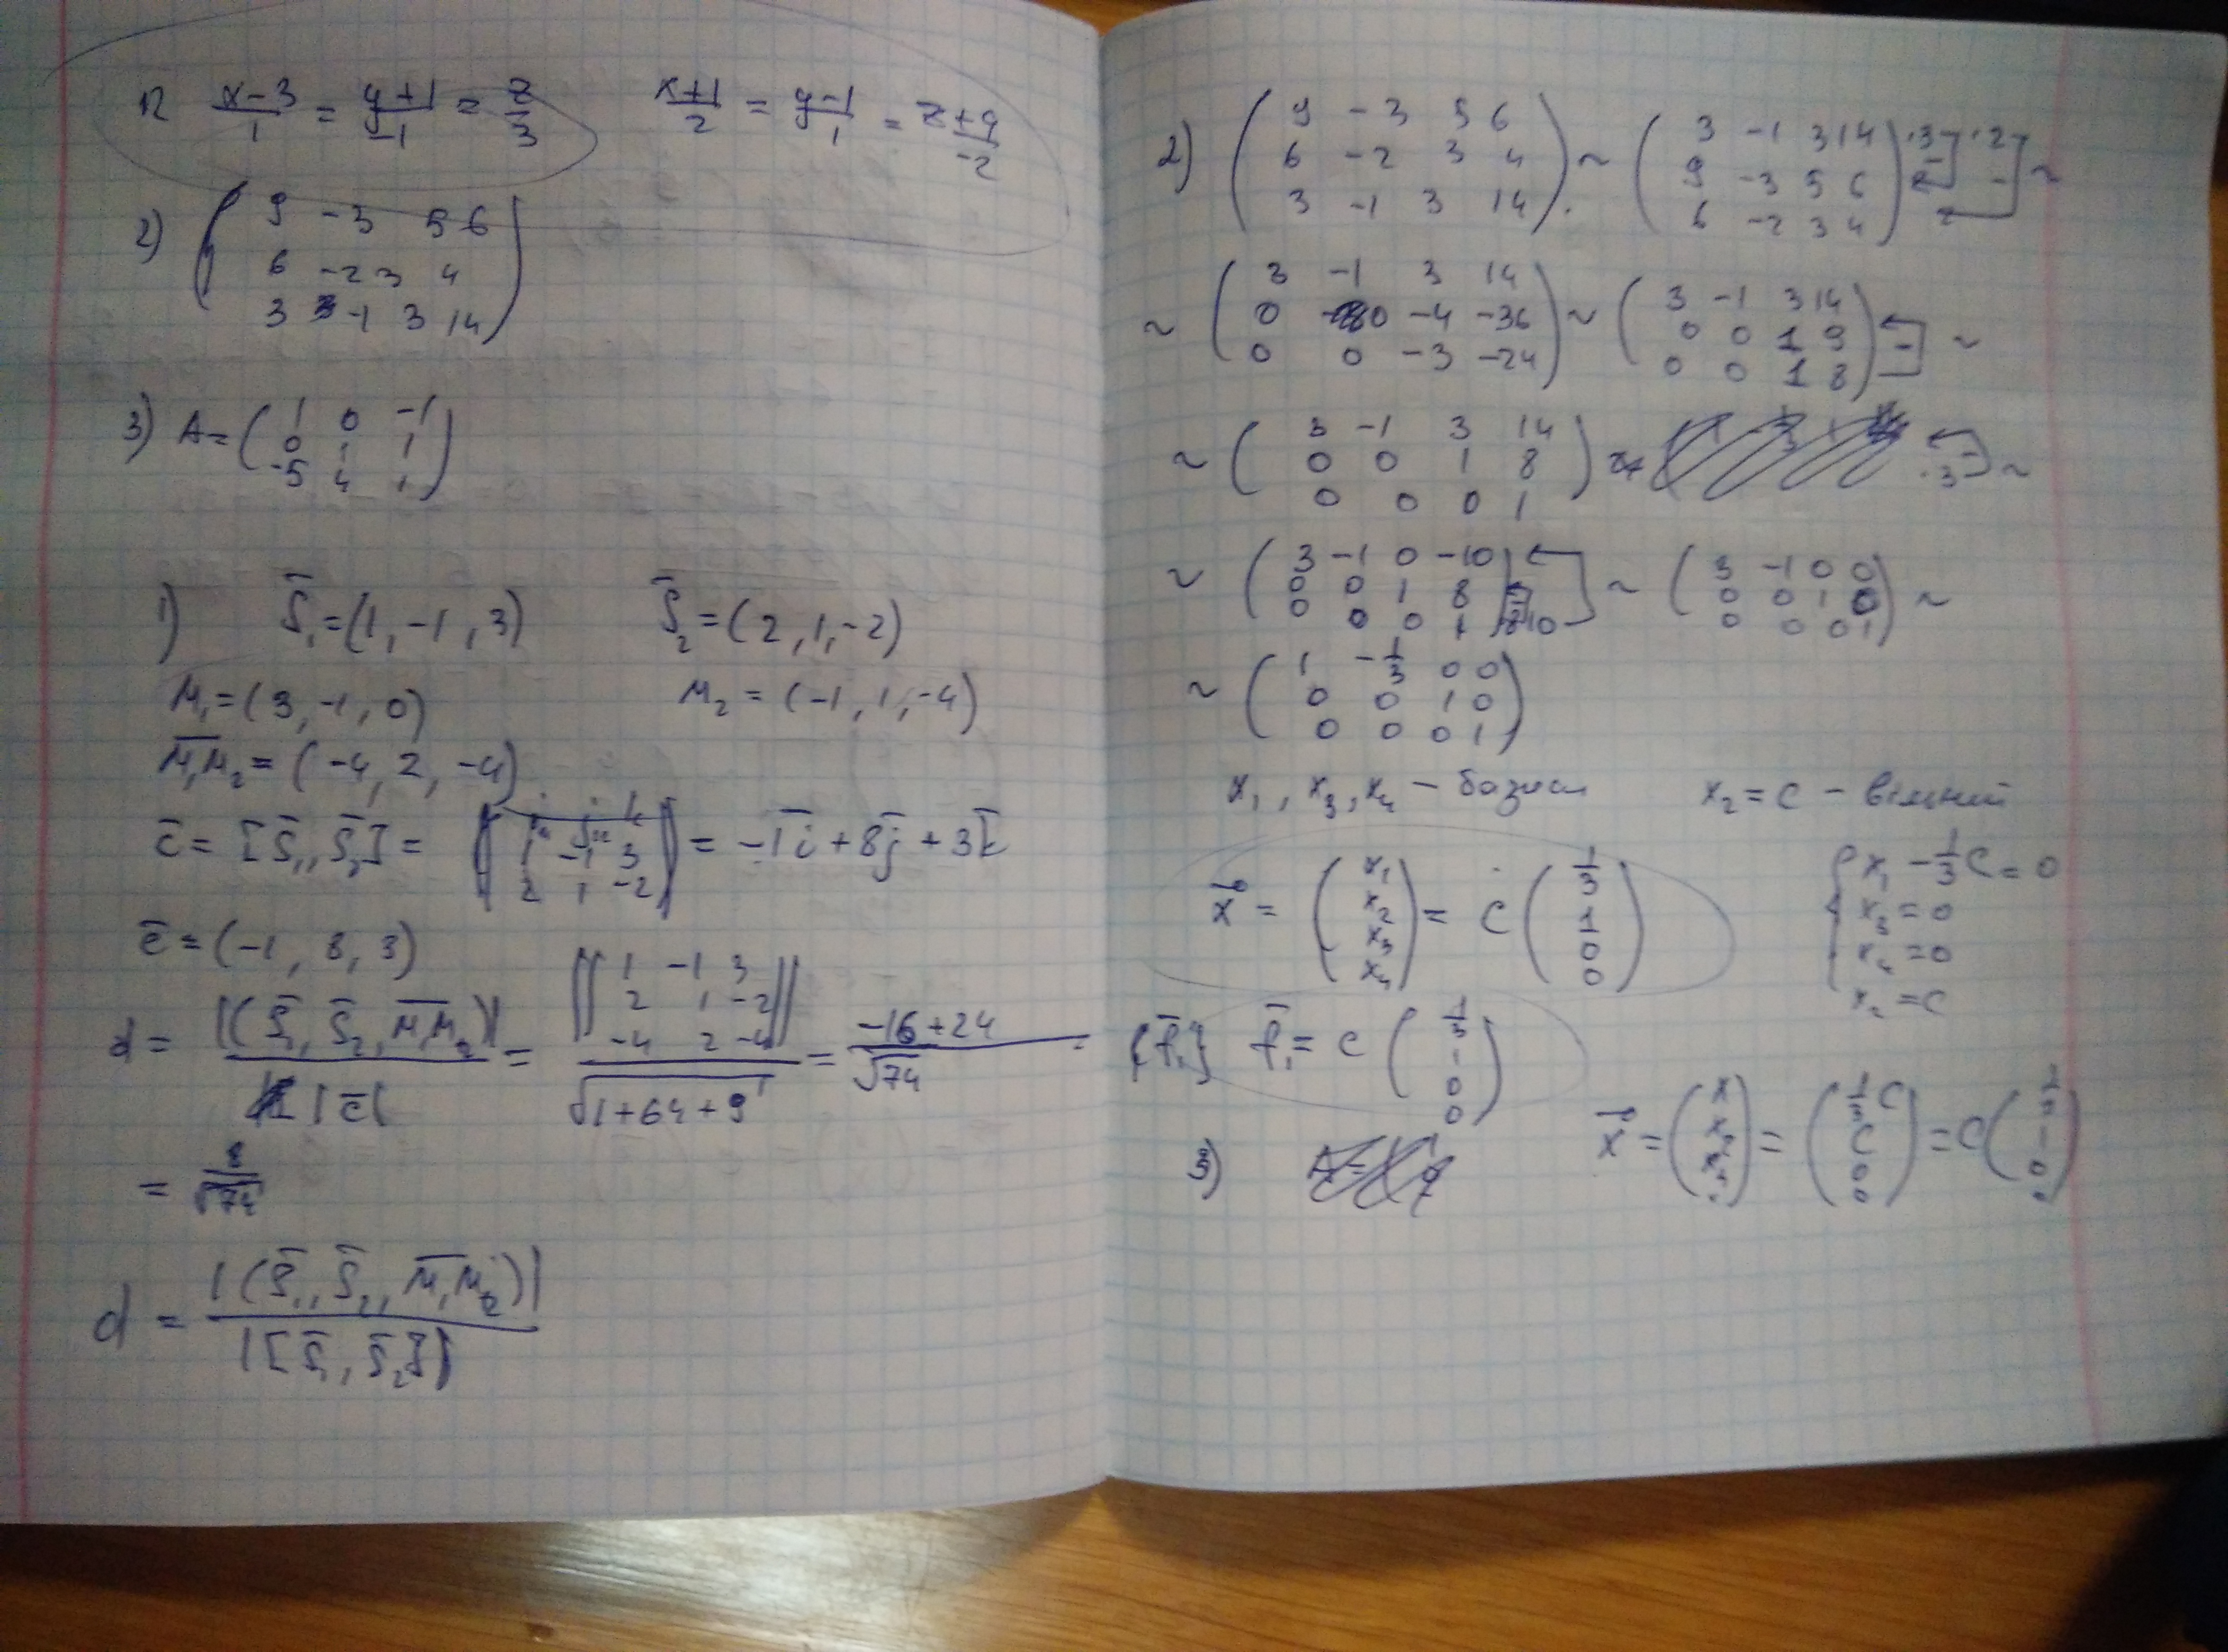 1) x-3/1 = y+1/-1 = z/3    x+1/2 = y-1/1 = z+4/-2
2) ( 9 -3 5 6
6 -2 3 4
3 -1 3 14 )
3) A = ( 1 0 -1
0 1 1
-5 4 1 )
1) S̄₁ = (1, -1, 3)    S̄₂ = (2, 1, -2)
M₁ = (3, -1, 0)    M₂ = (-1, 1, -4)
M₁M₂ = (-4, 2, -4)
c̄ = [S̄₁, S̄₂] = | i j k
1 -1 3
2 1 -2 | = -1ī + 8j̄ + 3k̄
c̄ = (-1, 8, 3)
d = |(S̄₁, S̄₂, M₁M₂)| / |c̄| = || 1 -1 3
2 1 -2
-4 2 -4 || / √(1+64+9) = -16+24 / √74 =
= 8/√74
d = |(S̄₁, S̄₂, M₁M₂)| / |[S̄₁, S̄₂]|
2) ( 9 -3 5 6
6 -2 3 4
3 -1 3 14 ) ~ ( 3 -1 3 14
9 -3 5 6
6 -2 3 4 ) ·3 - ·2 - ~
~ ( 3 -1 3 14
0 0 -4 -36
0 0 -3 -24 ) ~ ( 3 -1 3 14
0 0 1 9
0 0 1 8 ) - ~
~ ( 3 -1 3 14
0 0 1 8
0 0 0 1 ) - ·3 ~
~ ( 3 -1 0 -10
0 0 1 8
0 0 0 1 ) ·10 ~ ( 3 -1 0 0
0 0 1 0
0 0 0 1 ) ~
~ ( 1 -1/3 0 0
0 0 1 0
0 0 0 1 )
x₁, x₃, x₄ - базисн    x₂ = c - вільний
x⃗ = ( x₁
x₂
x₃
x₄ ) = c ( 1/3
1
0
0 )
{ x₁ - 1/3 c = 0
x₃ = 0
x₄ = 0
x₂ = c
{f̄₁} f̄₁ = c ( 1/3
1
0
0 )
x⃗ = = ( 1/3 c
c
0
0 ) = c
3)